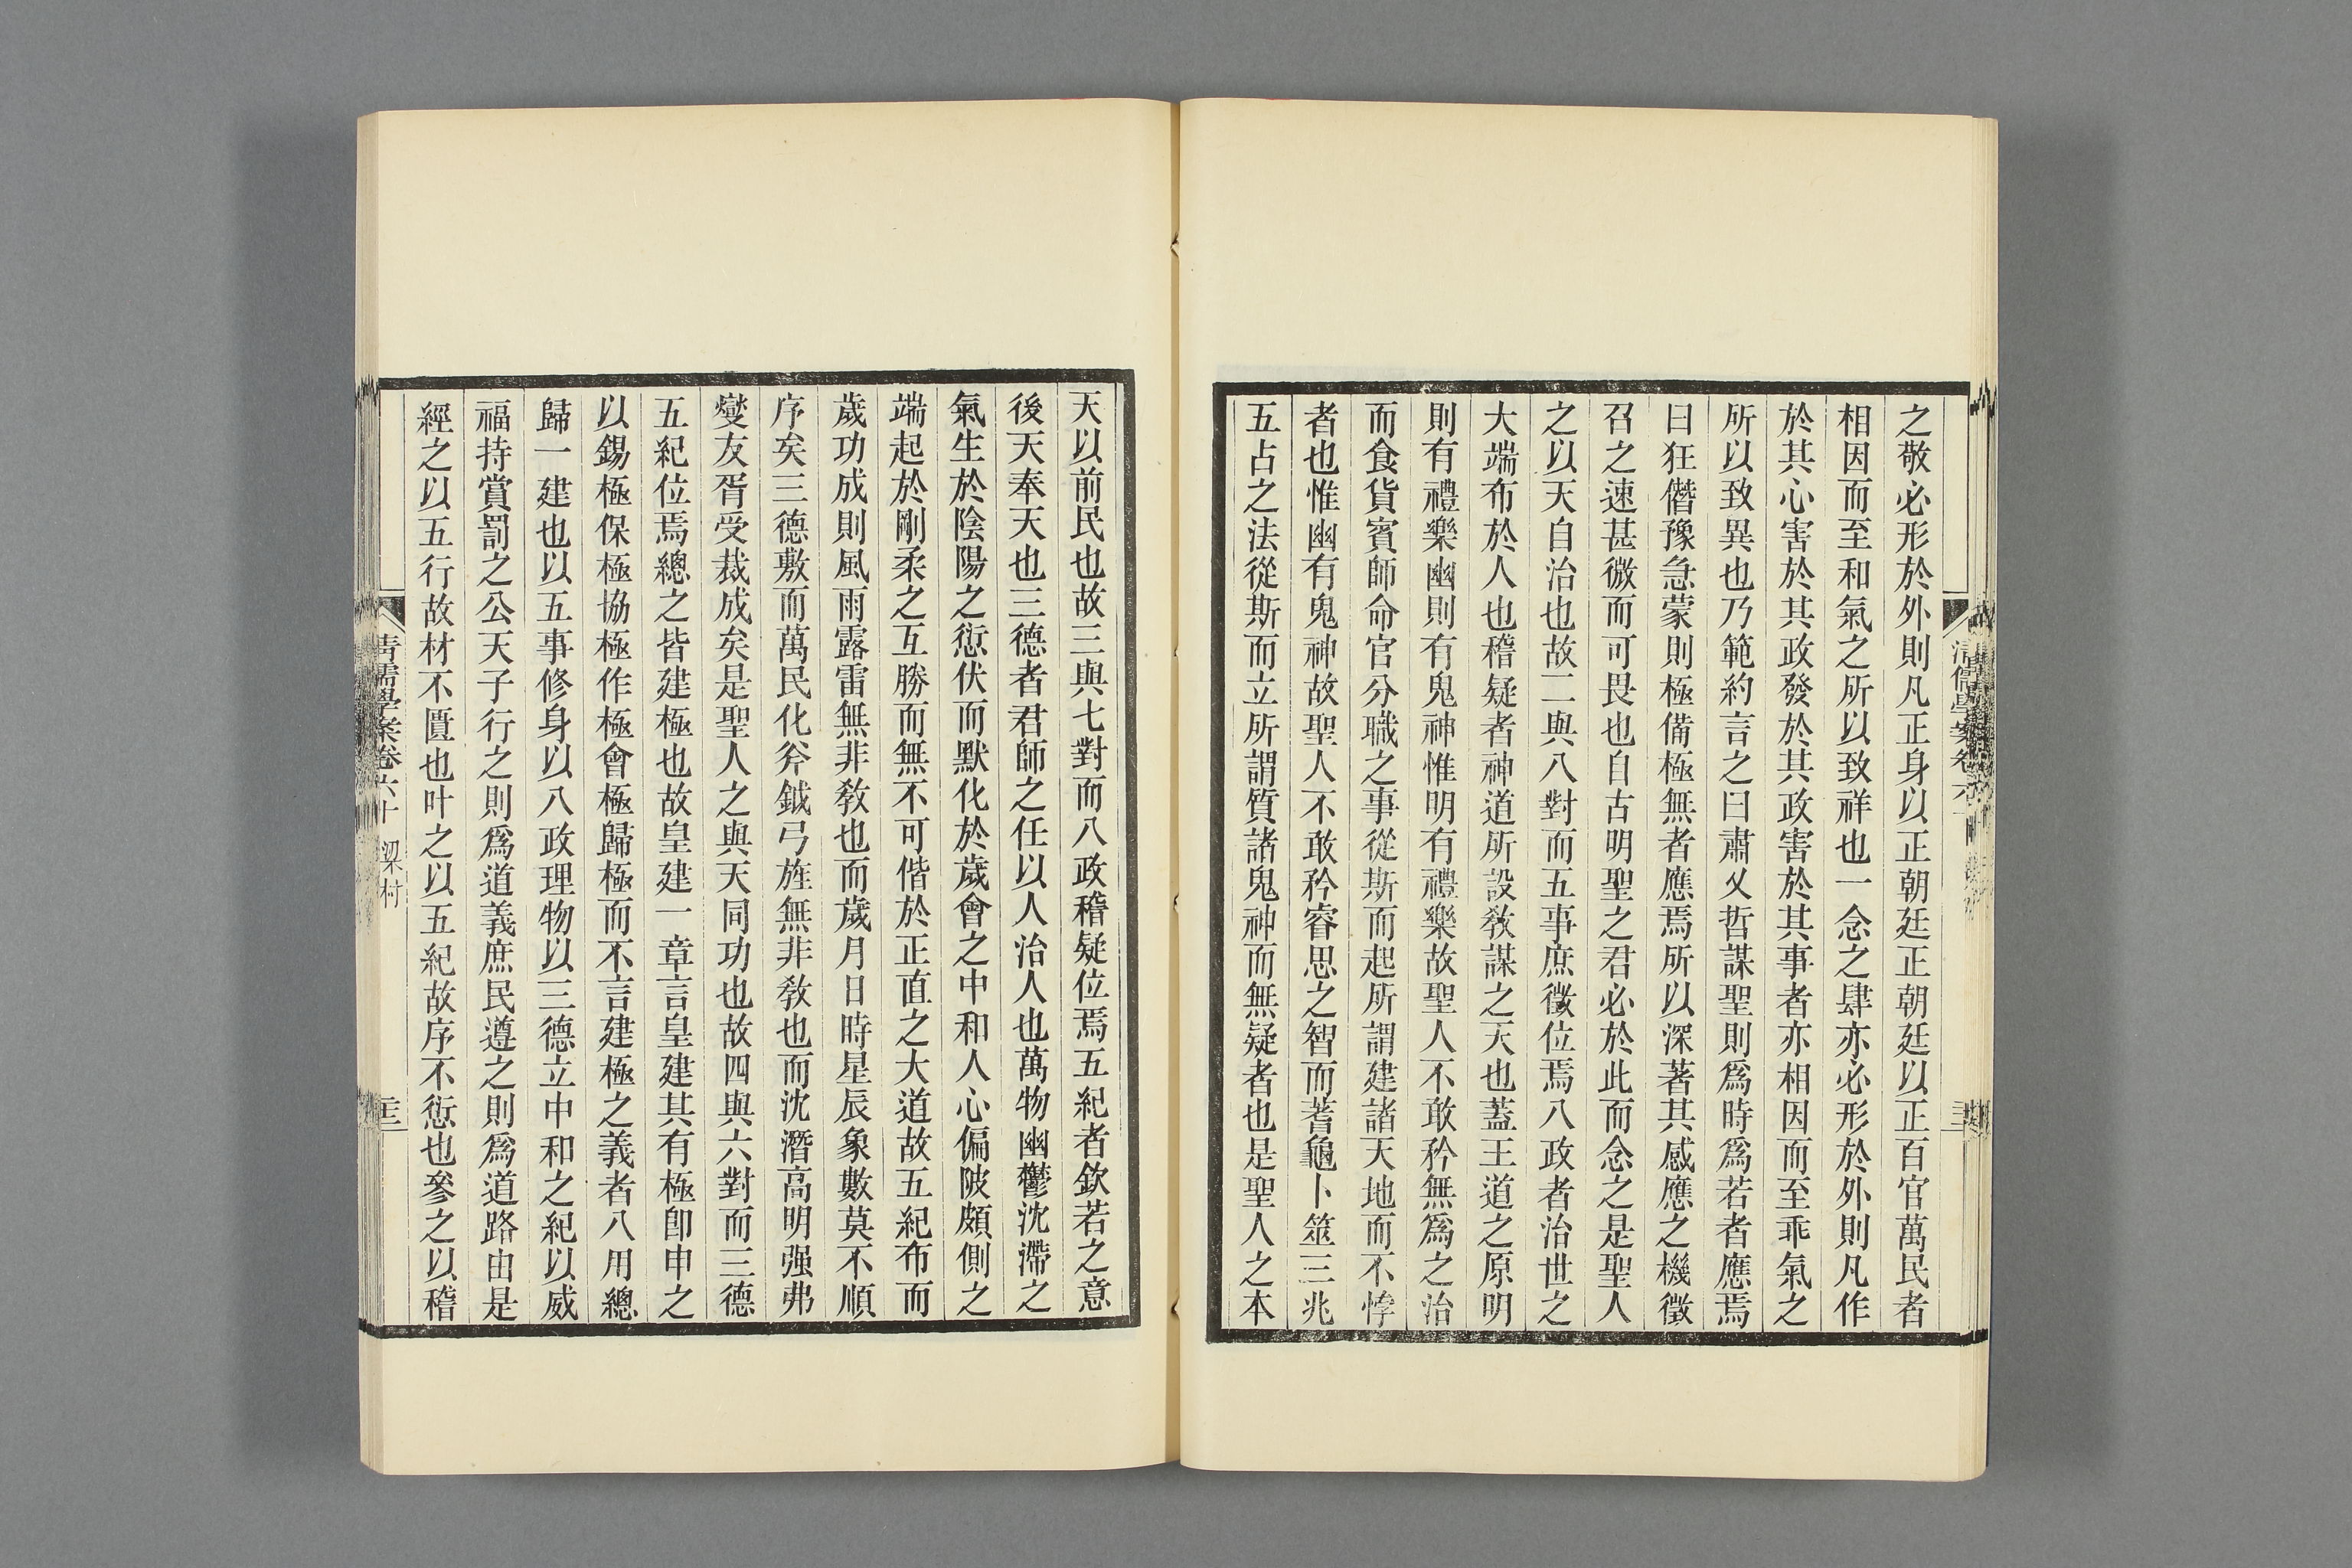 之敬必形於外則凡正身以正朝廷正朝廷以正百官萬民者
相因而至和氣之所以致祥也一念之肆亦必形於外則凡作
於其心害於其政發於其政害於其事者亦相因而至乖氣之
所以致異也乃範約言之曰肅乂哲謀聖則爲時爲若者應焉
曰狂僭豫急蒙則極備極無者應焉所以深著其感應之機徵
召之速甚微而可畏也自古明聖之君必於此而念之是聖人
之以天自治也故二與八對而五事庶徵位焉八政者治世之
大端布於人也稽疑者神道所設敎謀之天也蓋王道之原明
則有禮樂幽則有鬼神惟明有禮樂故聖人不敢矜無爲之治
而食貨賓師命官分職之事從斯而起所謂建諸天地而不悖
者也惟幽有鬼神故聖人不敢矜睿思之智而蓍龜卜筮三兆
五占之法從斯而立所謂質諸鬼神而無疑者也是聖人之本
天以前民也故三與七對而八政稽疑位焉五紀者欽若之意
後天奉天也三德者君師之任以人治人也萬物幽鬱沈滯之
氣生於陰陽之愆伏而默化於歲會之中和人心偏陂頗側之
端起於剛柔之互勝而無不可偕於正直之大道故五紀布而
歲功成則風雨露雷無非敎也而歲月日時星辰象數數莫不順
序矣三德敷而萬民化斧鉞弓旌無非敎也而沈潛高明强弗
燮友胥受裁成矣是聖人之與天同功也故四與六對而三德
五紀位焉總之皆建極也故皇建一章言皇建其有極卽申之
以錫極保極協極作極會極歸極而不言建極之義者八用總
歸一建也以五事修身以八政理物以三德立中和之紀以威
福持賞罰之公天子行之則爲道義庶民遵之則爲道路由是
經之以五行故材不匱也叶之以五紀故序不愆也參之以稽
清儒學案卷六十 梁村